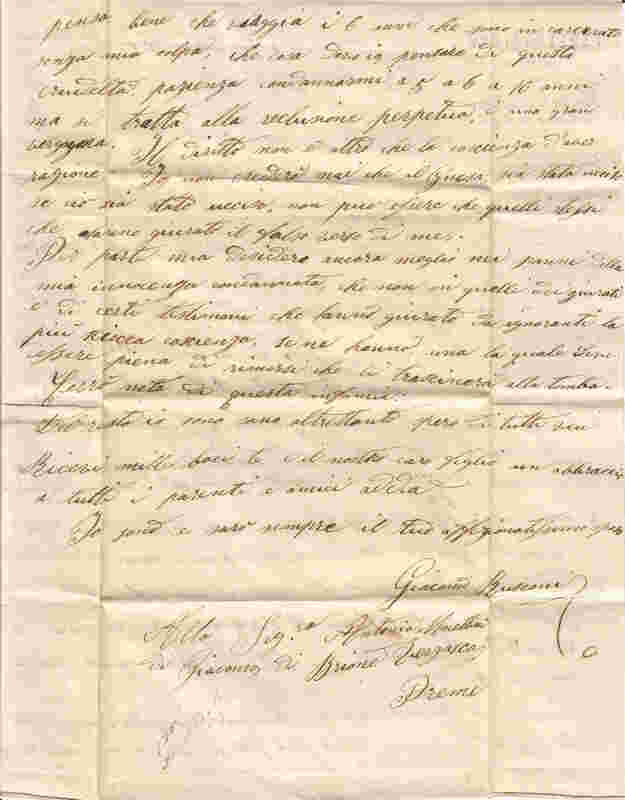 penso bene che viaggia i 6 mesi che sono in carcerato
senza mia colpa, che cosa devo io pensare di questa
crudeltà, pazienza condannarmi a 5 a 6 a 10 anni
ma si tratta alla reclusione perpetua, è una gran
vergogna. Il diritto non è altro che la coscienza d'aver
razione Io non crederò mai che il sia stato ucciso
se ciò sia stato ucciso, non può essere che quelli stessi
che giurato il falso verso di me.
Per parte mia desidero ancora meglio nei panni della
mia innocenza condannata, che non in quelle dei giurati
e di certi testimoni che hanno giurato da ignoranti la
più ricca coscienza, se ne hanno una la quale
essere piena di rimorsi che li trascinera alla tomba.
nota di questa infamia.
Del resto io sono sano altrettanto spero di tutti voi
Ricevi mille baci te e il nostro caro figlio un abbraccio
a tutti i parenti e amici addia
Io sono e sarò sempre il tuo affezionatissimo
Giacomo
Alla Sig.ra
di Giacomo di Brione Verzasca